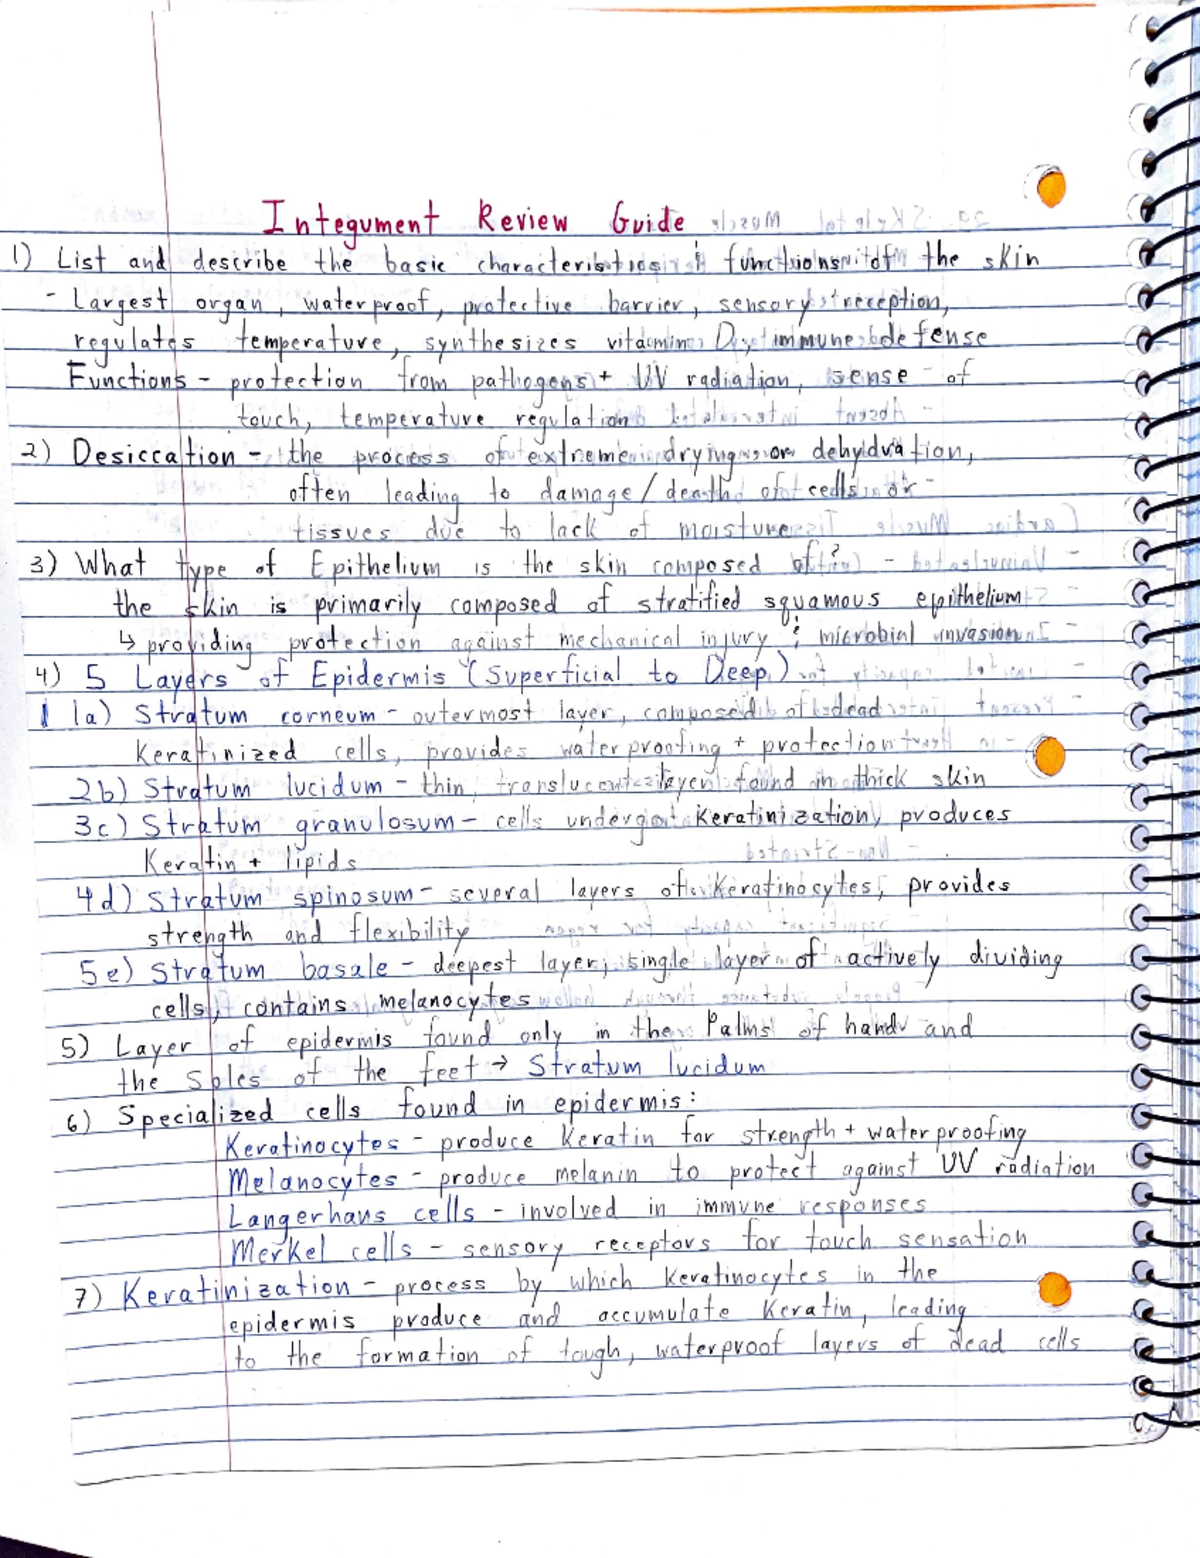 Integument Review Guide
1) List and describe the basic characteristics & functions of the skin
- Largest organ, waterproof, protective barrier, sensory reception,
regulates temperature, synthesizes vitamin D, immune defense
Functions - protection from pathogens + UV radiation, sense of
touch, temperature regulation
2) Desiccation - the process of extreme drying or dehydration,
often leading to damage/death of cells or
tissues due to lack of moisture
3) What type of Epithelium is the skin composed of?
the skin is primarily composed of stratified squamous epithelium
↳ providing protection against mechanical injury & microbial invasion
4) 5 Layers of Epidermis (Superficial to Deep)
1a) Stratum corneum - outermost layer, composed of dead
Keratinized cells, provides waterproofing + protection
2b) Stratum lucidum - thin, translucent layer found in thick skin
3c) Stratum granulosum - cells undergo Keratinization, produces
Keratin + lipids
4d) Stratum spinosum - several layers of Keratinocytes, provides
strength and flexibility
5e) Stratum basale - deepest layer, single layer of actively dividing
cells, contains melanocytes
5) Layer of epidermis found only in the Palms of hand and
the Soles of the feet → Stratum lucidum
6) Specialized cells found in epidermis:
Keratinocytes - produce Keratin for strength + waterproofing
Melanocytes - produce melanin to protect against UV radiation
Langerhans cells - involved in immune responses
Merkel cells - sensory receptors for touch sensation
7) Keratinization - process by which Keratinocytes in the
epidermis produce and accumulate Keratin, leading
to the formation of tough, waterproof layers of dead cells